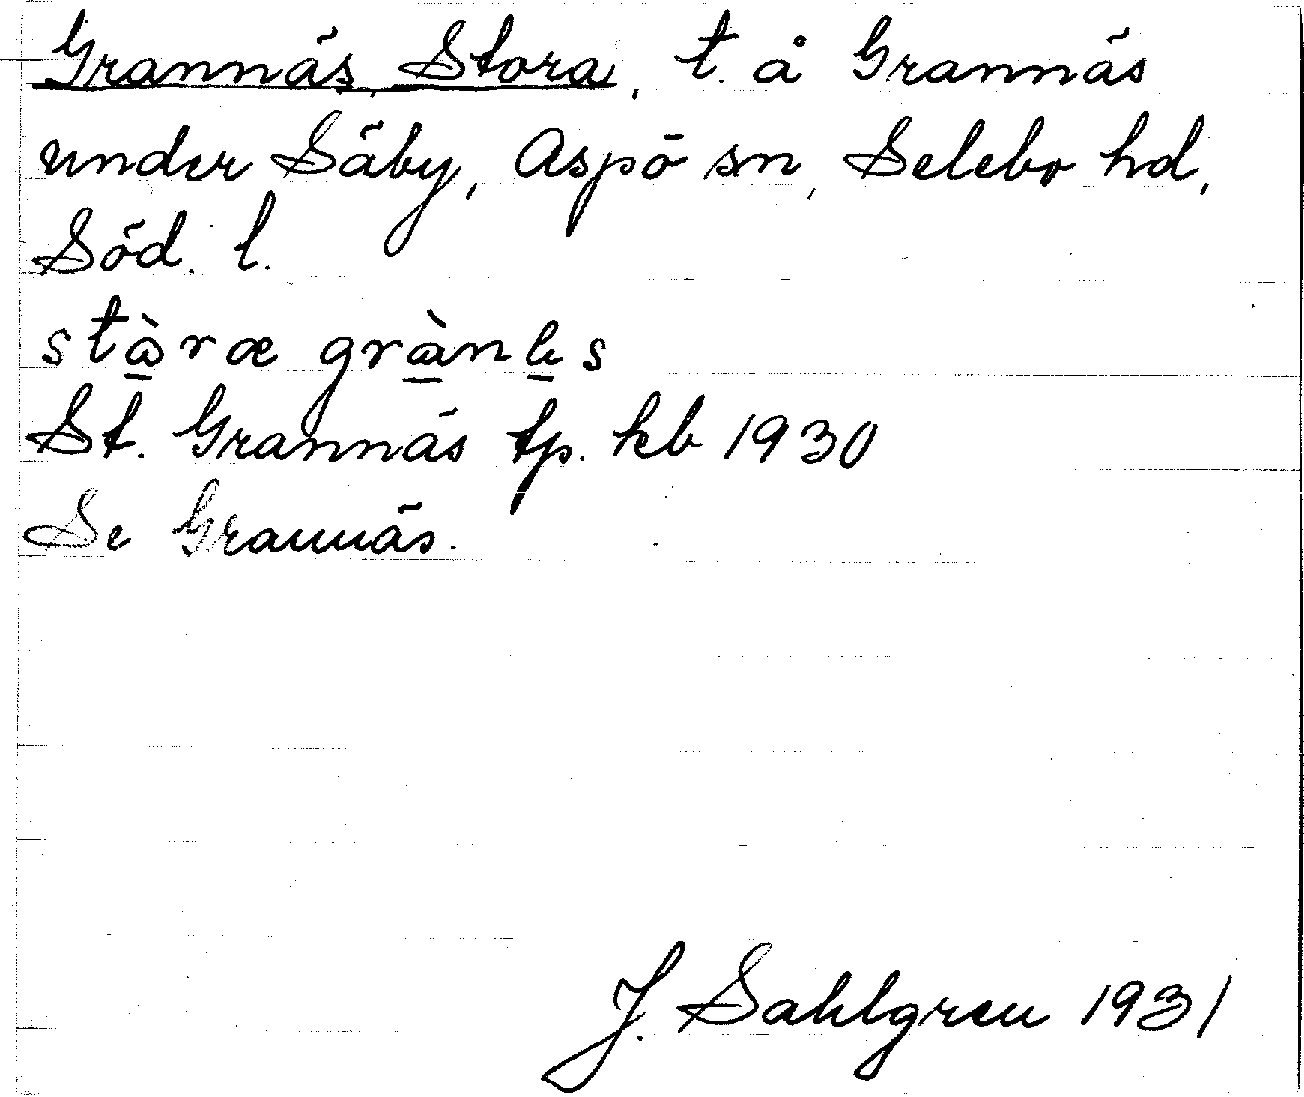 Grannäs, Stora, t. å Grannäs
under Säby, Aspö sn, Selebo hd,
Söd. l.
stὰ̱ræ grὰ̱nḛs
St. Grannäs tp. kb 1930
Se Grannäs.
J. Sahlgren 1931